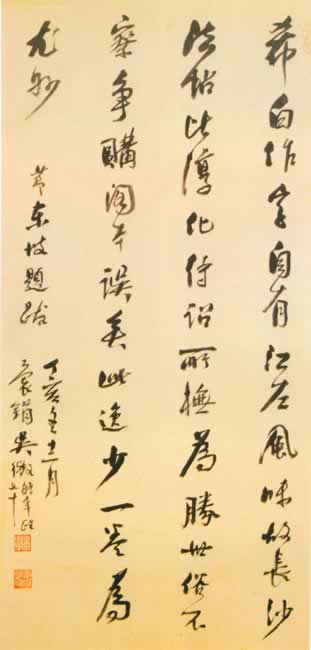 希白作字自有江左風味故長沙
法帖比淳化待詔所橅為勝世俗不
察爭購閣本誤矣此逸少一卷為
尤妙
節東坡題跋
丁亥冬十一月
袌鋗吳徵時年七十